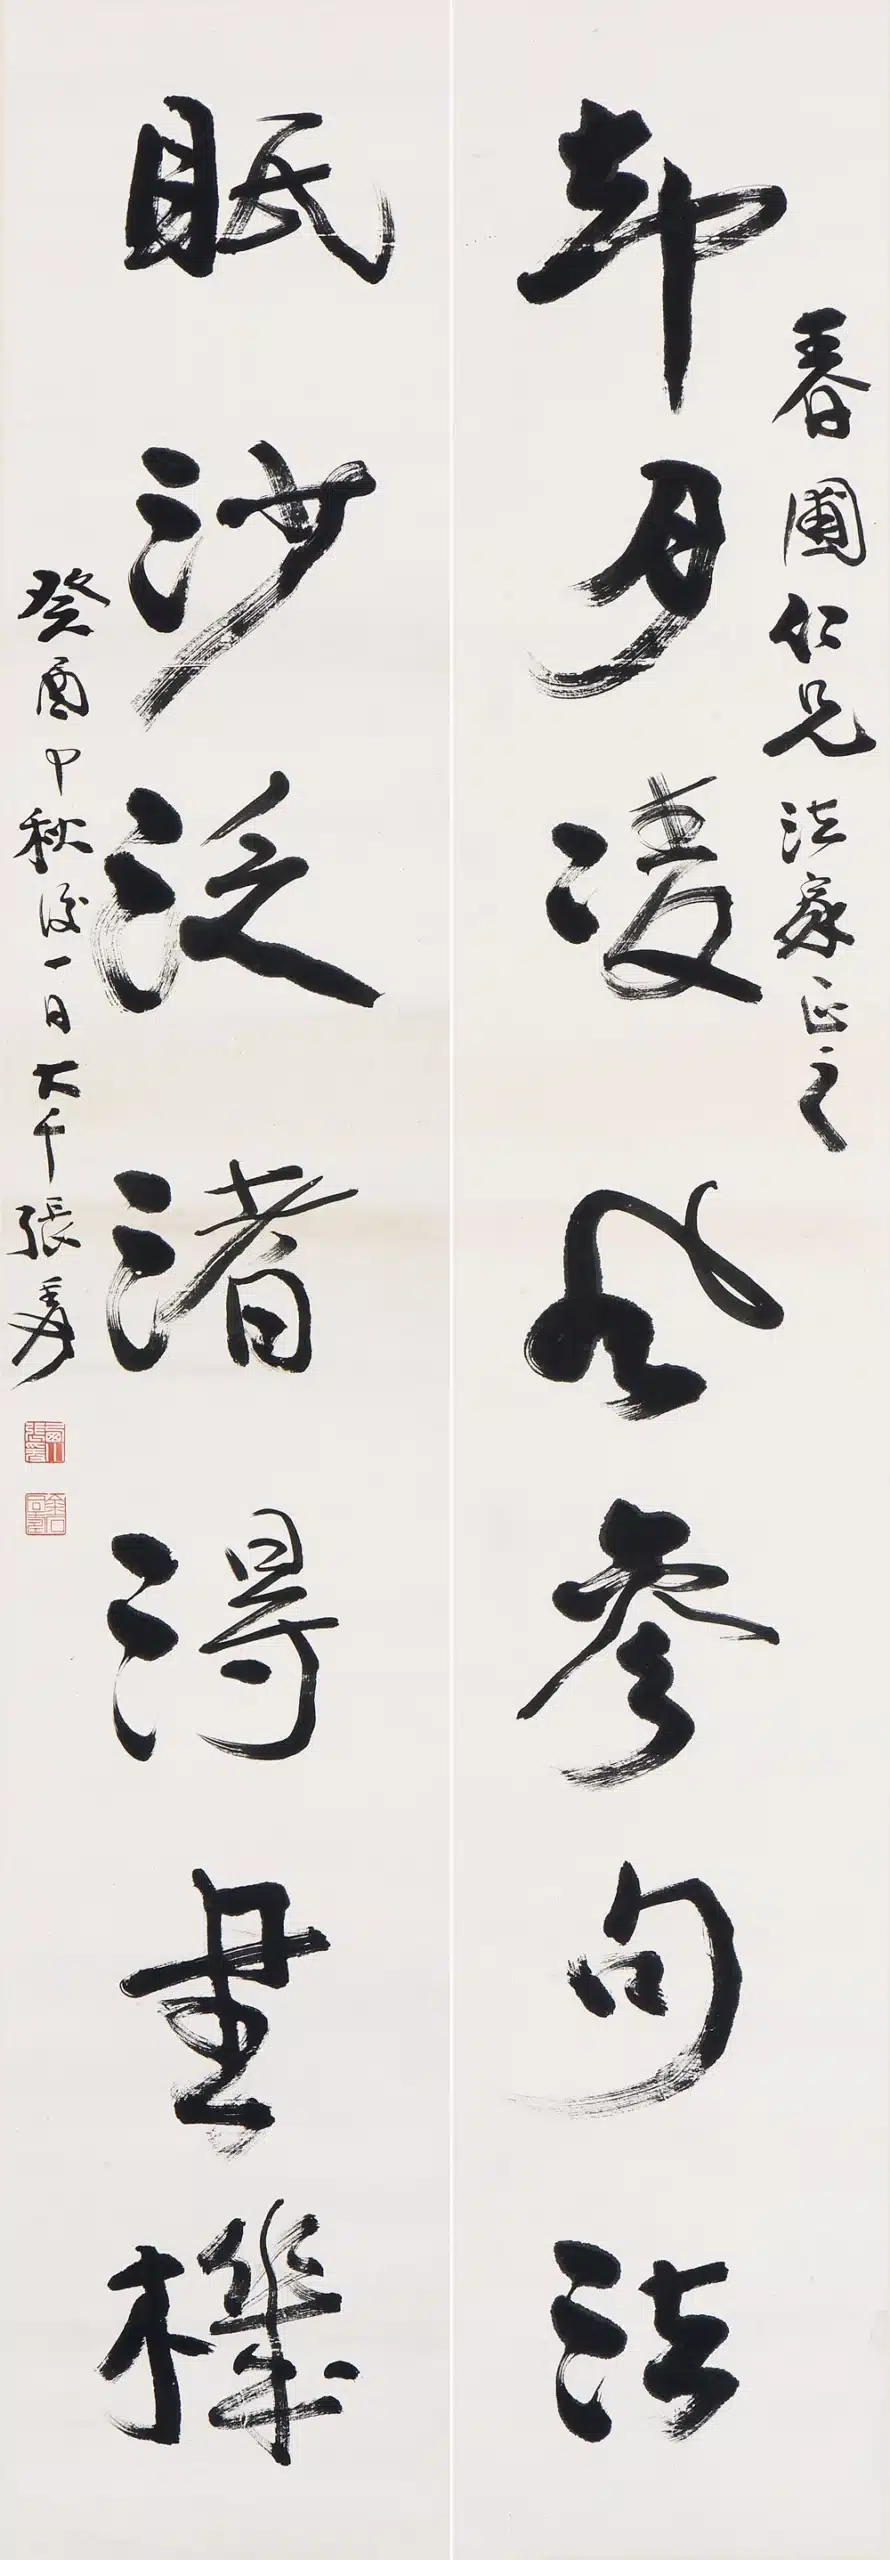 春圃仁兄法家正之
却月凌風參句法
眠沙泛渚得畫機
癸酉中秋後一日大千張爰